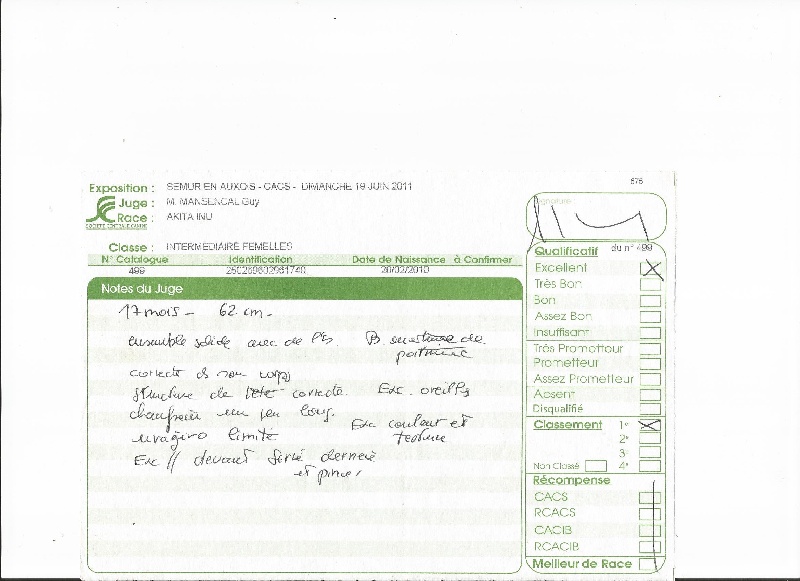 676
Exposition : SEMUR EN AUXOIS - CACS - DIMANCHE 19 JUIN 2011
Juge : M. MANSENCAL Guy
Race : AKITA INU
SOCIÉTÉ CENTRALE CANINE
Classe : INTERMEDIAIRE FEMELLES
N° Catalogue Identification Date de Naissance à Confirmer
499 250269602961740 26/02/2010
Notes du Juge
17 mois - 62 cm -
ensemble solide avec de l'os. B. ossature de
poitrine
correcte
structure de tête correcte. Exc. oreilles
chanfrein un peu long.
limité Exc couleur et
texture
Exc // devant derrière
et
Signature :
Qualificatif du n° 499
Excellent
Très Bon
Bon
Assez Bon
Insuffisant
Très Prometteur
Prometteur
Assez Prometteur
Absent
Disqualifié
Classement 1e
2e
3e
Non Classé 4e
Récompense
CACS
RCACS
CACIB
RCACIB
Meilleur de Race